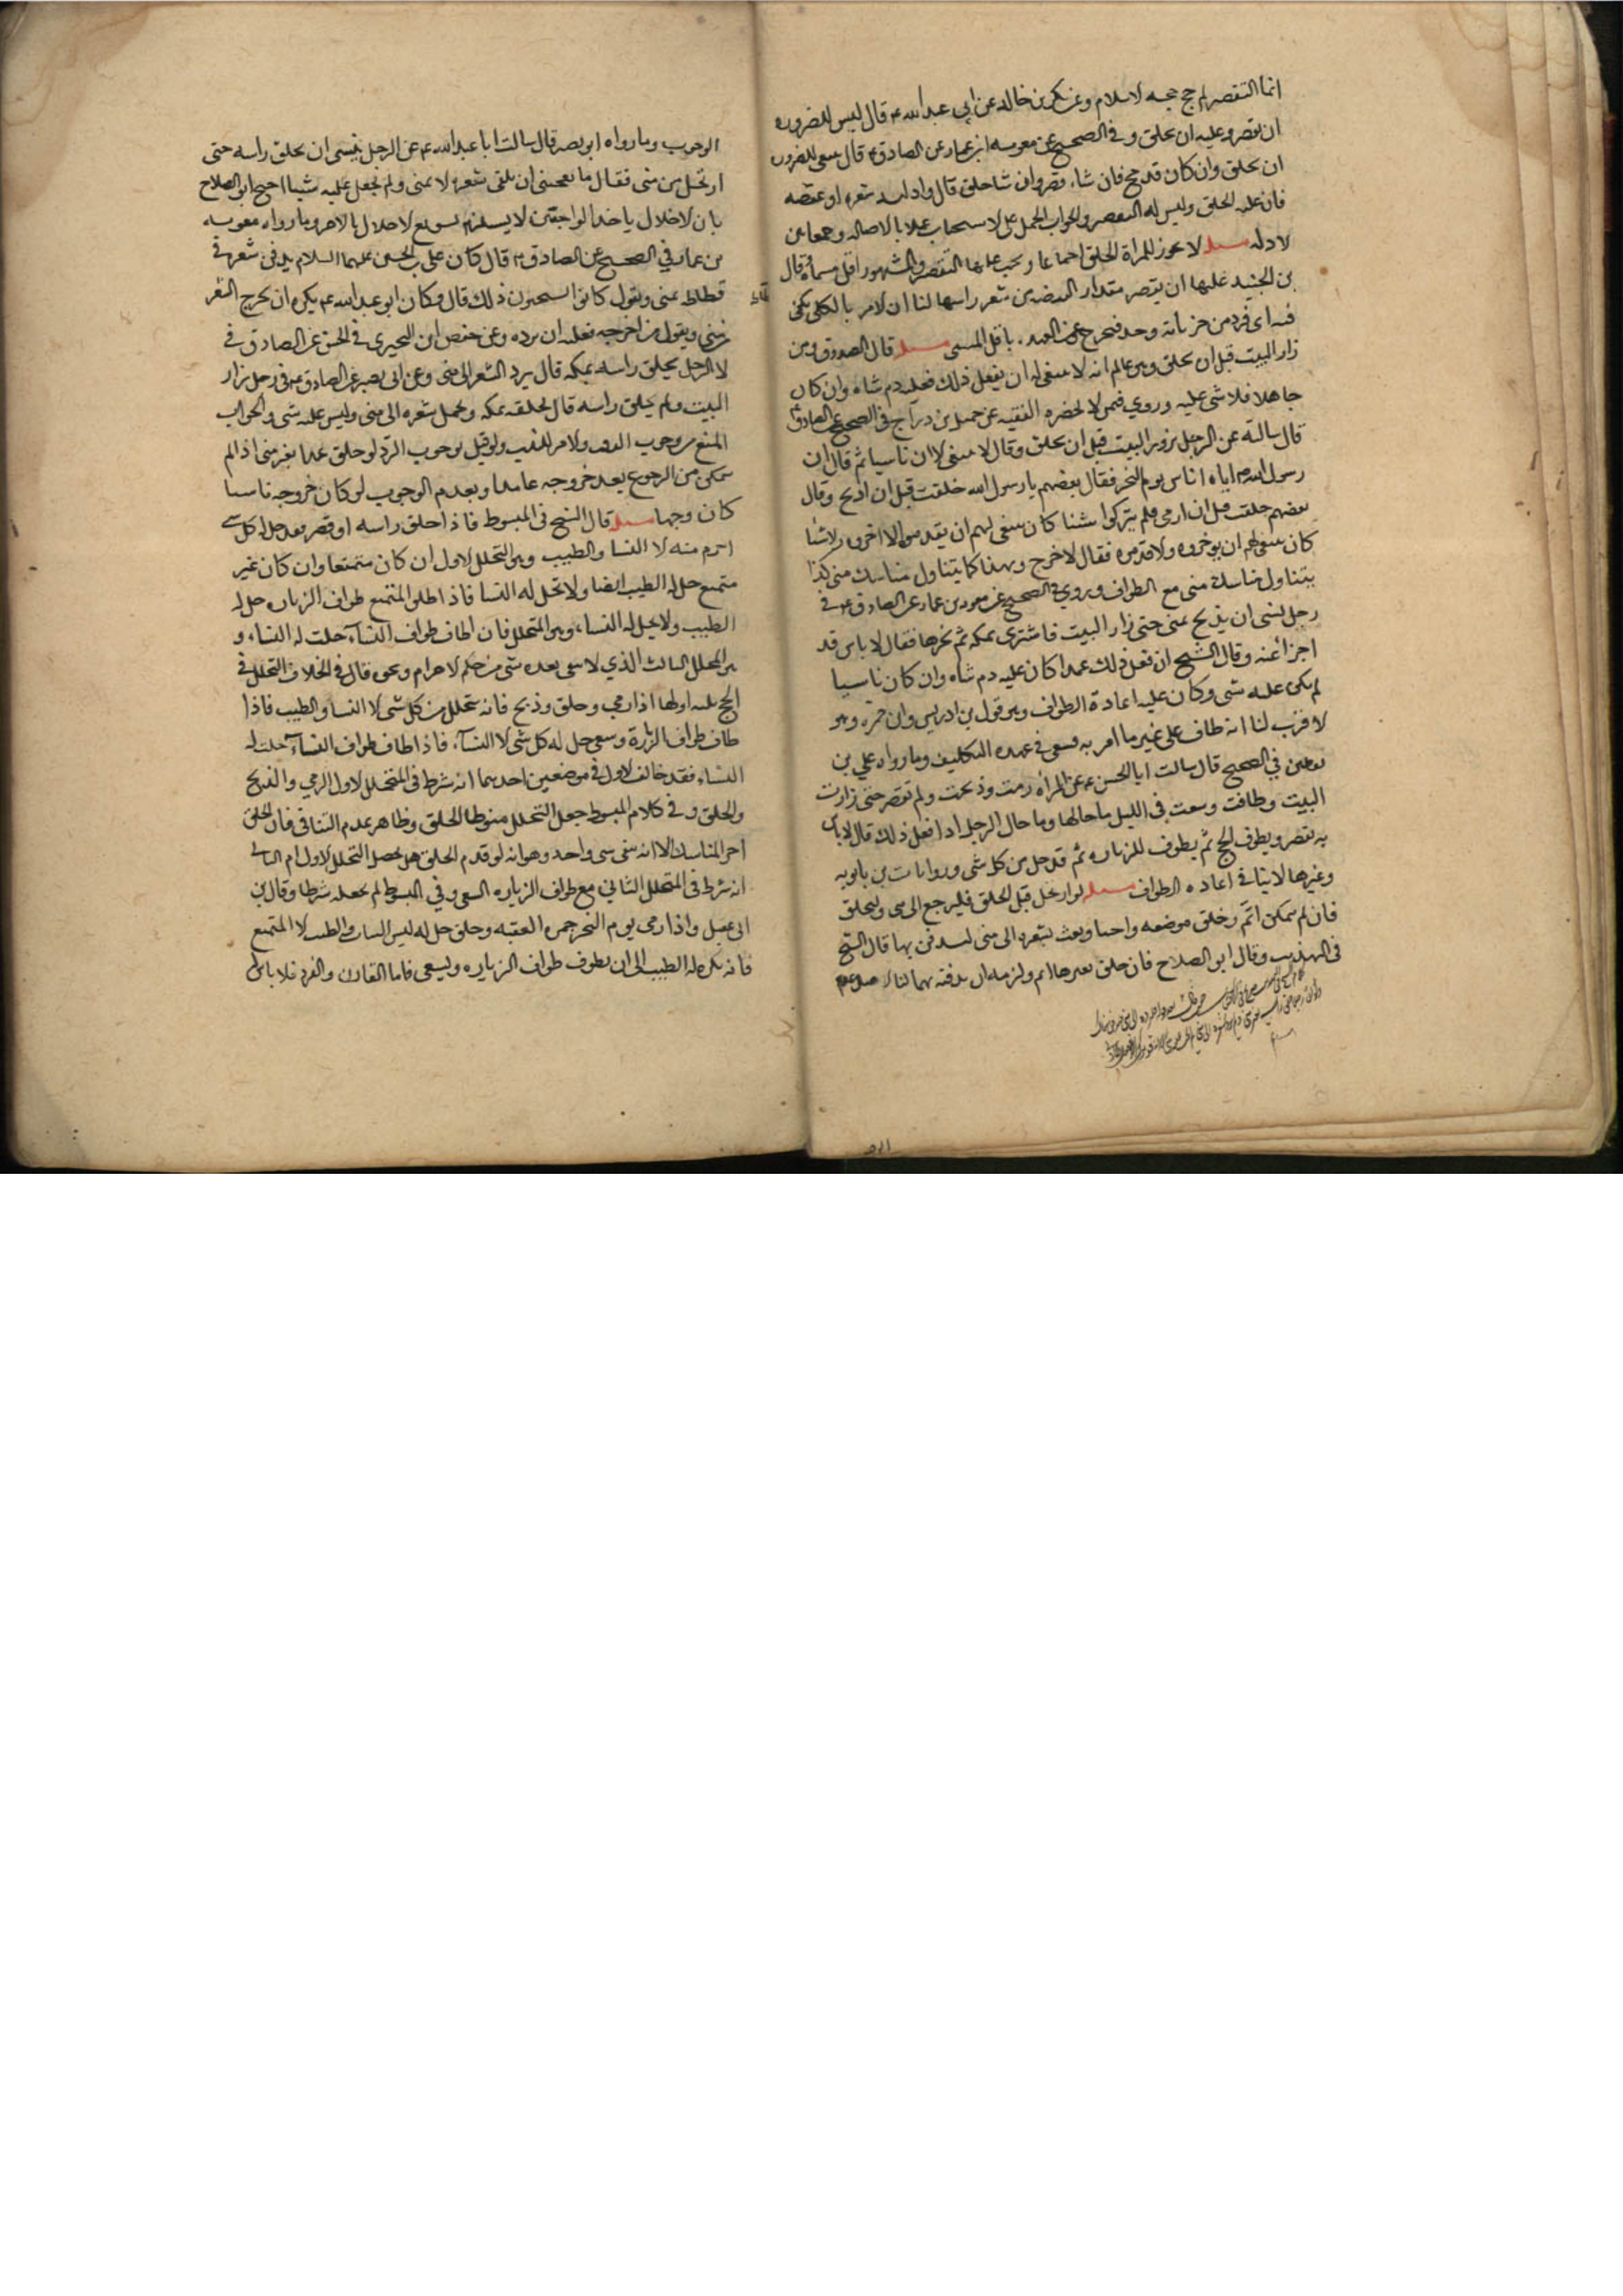 انما التقصير لم حج حجه الاسلام وعن بكر بن خالد عن ابي عبدالله ع قال ليس للضروره
ان يقصر وعليه ان يحلق وفي الصحيح عن معويه ابن عمار عن الصادق ع قال ينبغي للضروره
ان يحلق وان كان قد حج فان شاء قصر وان شا حلق قال واذا لبد شعره او عقصه
فان عليه الحلق وليس له التقصير والجواب الحمل على الاستحباب عملا بالاصاله وجمعا بين
الادله مسله لا يجوز للمراة الحلق اجماعا ويجب عليها التقصير والمشهور اقل مسماه وقال
بن الجنيد عليها ان يقصر مقدار القبضه من شعر راسها لنا ان الامر بالكلي يكفي
فيه اي فرد من جزياته وجد فيخرج عن العهده باقل المسمى مسله قال الصدوق ومن
زار البيت قبل ان يحلق وهو عالم انه لا ينبغي له ان يفعل ذلك فعليه دم شاه وان كان
جاهلا فلا شي عليه وروي فيمن لا يحضره الفقيه عن جميل بن دراج في الصحيح عن الصادق ع
قال سالته عن الرجل يزور البيت قبل ان يحلق وقال لا ينبغي الا ان ناسيا ثم قال ان
رسول الله ص اتاه اناس يوم النحر فقال بعضهم يارسول الله حلقت قبل ان اذبح وقال
بعضهم حلقت قبل ان ارمي فلم يتركوا شيئا كان ينبغي لهم ان يقدموه الا اخروه ولا شيا
كان ينبغي لهم ان يوخروه الا قدموه فقال لا حرج وهذا كما يتناول مناسك منى كذا
يتناول مناسك منى مع الطواف وروي في الصحيح عن معويه بن عمار عن الصادق ع في
رجل نسي ان يذبح بمنى حتى زار البيت فاشترى بمكه ثم نحرها فقال لا باس قد
اجزا عنه وقال الشيخ ان فعل ذلك عمدا كان عليه دم شاه وان كان ناسيا
لم يكن عليه شي وكان عليه اعادة الطواف وهو قول بن ادريس وابن حمزه وهو
الاقرب لنا انه طاف على غير ما امر به فبقى في عهده التكليف وما رواه علي بن
يقطين في الصحيح قال سالت ابا الحسن ع عن المراه رمت وذبحت ولم تقصر حتى زارت
البيت وطافت وسعت في الليل ما حالها وما حال الرجل اذا فعل ذلك قال لا باس
به يقصر ويطوف للحج ثم يطوف للزياره ثم قد حل من كل شي وروايات بن بابويه
وغيرها لا ينافي اعاده الطواف مسله لو ارتحل قبل الحلق فليرجع الى منى وليحلق
فان لم يمكن اثم وحلق موضعه واجبا وبعث بشعره الى منى ليدفن بها قال الشيخ
في التهذيب وقال ابو الصلاح فان حلق بغيرها اثم ولزمه ان يدفنه بها لنا الاصل عدم
الوجوب وما رواه ابو بصير قال سالت ابا عبدالله ع عن الرجل ينسى ان يحلق راسه حتى
ارتحل من منى فقال ما يعجبني ان يلقي شعره الا بمنى ولم يجعل عليه شيا احتج ابو الصلاح
بان الاخلال باحد الواجبين لا يستلزم تسويغ الاخلال بالاخر وما رواه معويه
بن عمار في الصحيح عن الصادق ع قال كان علي بن الحسين عليهما السلام يدفن شعره في
فسطاط بمنى ويقول كانوا يستحبون ذلك قال وكان ابو عبدالله ع يكره ان يخرج الشعر
من منى ويقول من اخرجه فعليه ان يرده وعن حفص ابن البحتري في الحسن عن الصادق في
الرجل يحلق راسه بمكه قال يرد الشعر الى منى وعن ابي بصير عن الصادق ع في رجل زار
البيت ولم يحلق راسه قال يحلقه بمكه ويحمل شعره الى منى وليس عليه شي والجواب
المنع من وجوب الدفن والامر للندب ولو قيل بوجوب الرد لو حلق عمدا بغير منى اذا لم
يتمكن من الرجوع بعد خروجه عامدا وبعدم الوجوب لو كان خروجه ناسيا
كان وجها مسله قال الشيخ في المبسوط فاذا حلق راسه او قصر فقد حل له كل شي
احرم منه الا النسا والطيب وهو التحلل الاول ان كان متمتعا وان كان غير
متمتع حل له الطيب ايضا ولا تحل له النسا فاذا طاف المتمتع طواف الزياره حل له
الطيب ولا يحل له النساء وهو المتحلل فان طاف طواف النساء حلت له النساء و
هو المحلل الثالث الذي لا يبقى بعده شي من حكم الاحرام ونحوه قال في الخلاف التحلل في
الحج ثلثه اولها اذا رمي وحلق وذبح فانه يتحلل من كل شي الا النسا والطيب فاذا
طاف طواف الزيارة وسعى حل له كل شي الا النساء فاذا طاف طواف النساء حلت له
النساء فقد خالف الاول في موضعين احدهما انه شرط في المتحلل الاول الرمي والذبح
والحلق وفي كلام المبسوط جعل التحلل منوطا بالحلق وظاهر عدم التنافي فان الحلق
اخر المناسك الا انه بقي شي واحد وهو انه لو قدم الحلق هل يحصل التحلل الاول ام الثاني
انه شرط في المتحلل الثاني مع طواف الزياره السعي وفي المبسوط لم يجعله شرطا وقال بن
ابي عقيل واذا رمى يوم النحر جمره العقبه وحلق حل له لبس الثياب والطيب الا المتمتع
فانه يكره له الطيب الى ان يطوف طواف الزياره ويسعى فاما القارن والمفرد فلا باس